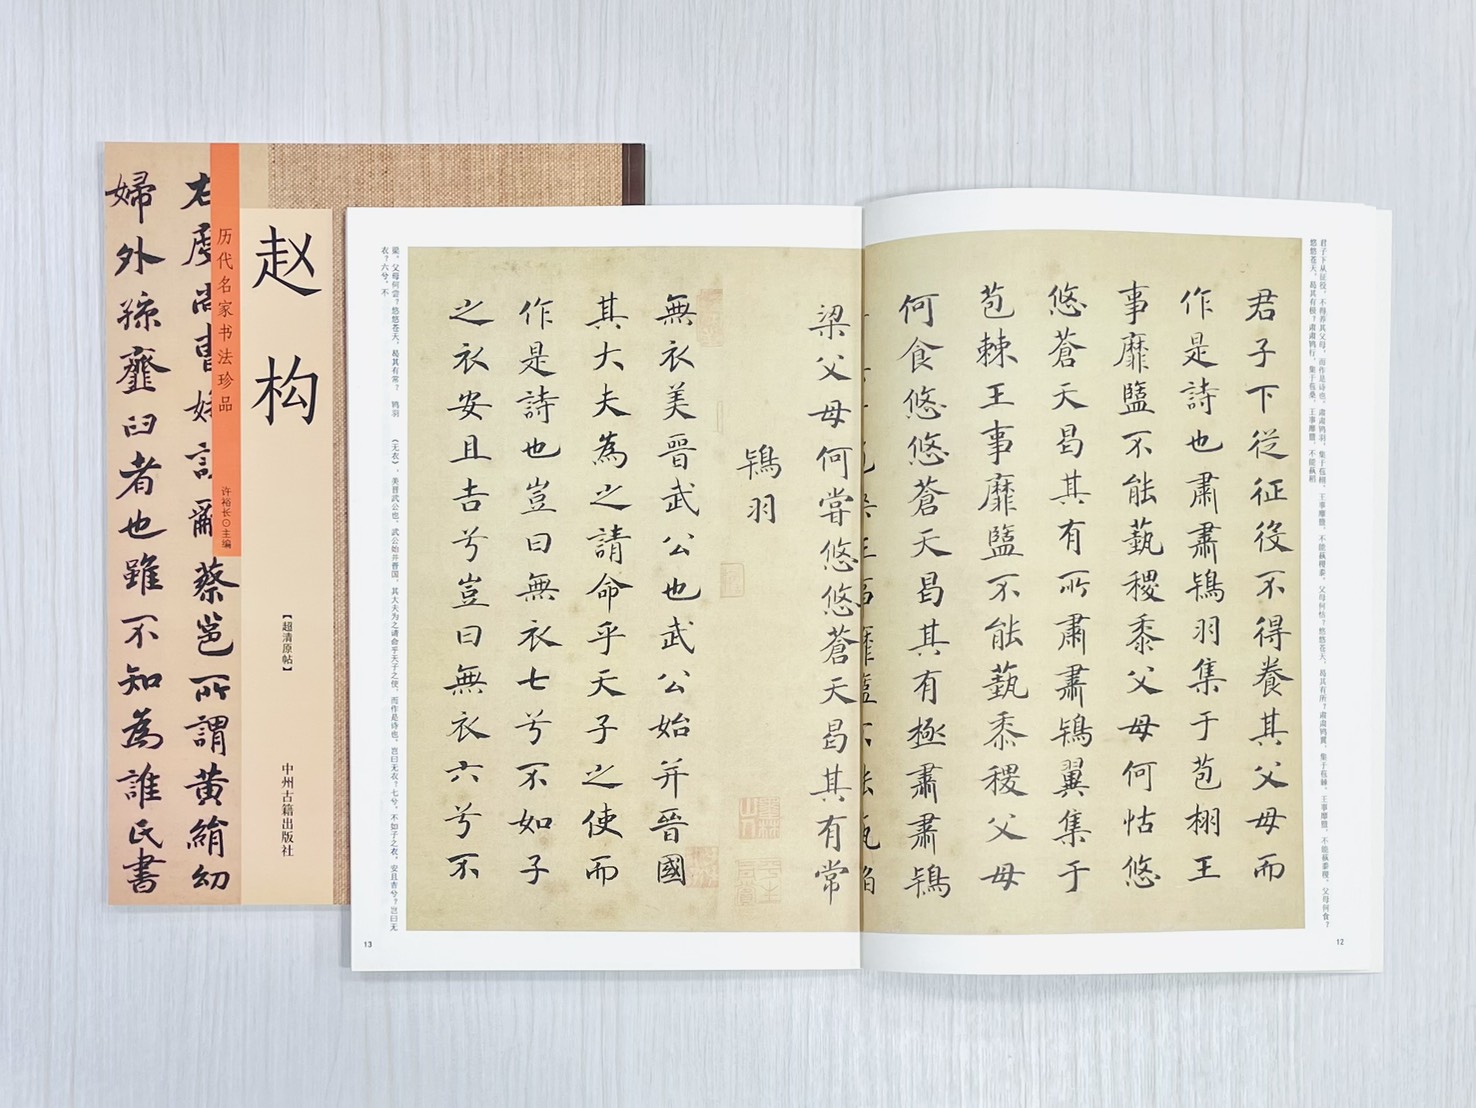 右度尚曹娥訶辭蔡邕所謂黃絹幼
婦外孫齏臼者也雖不知為誰氏書
历代名家书法珍品
许裕长⊙主编
赵构
【超清原帖】
中州古籍出版社
君子下从征役，不得养其父母，而作是诗也。肃肃鸨羽，集于苞栩。王事靡盬，不能蓺稷黍。父母何怙？悠悠苍天，曷其有所？肃肃鸨翼，集于苞棘。王事靡盬，不能蓺黍稷。父母何食？
悠悠苍天，曷其有极？肃肃鸨行，集于苞桑。王事靡盬，不能蓺稻
君子下從征役不得養其父母而
作是詩也肅肅鴇羽集于苞栩王
事靡盬不能蓺稷黍父母何怙悠
悠蒼天曷其有所肅肅鴇翼集于
苞棘王事靡盬不能蓺黍稷父母
何食悠悠蒼天曷其有極肅肅鴇
梁父母何嘗悠悠蒼天曷其有常
鴇羽
無衣美晉武公也武公始并晉國
其大夫為之請命乎天子之使而
作是詩也豈曰無衣七兮不如子
之衣安且吉兮豈曰無衣六兮不
梁。父母何尝？悠悠苍天，曷其有常？ 鸨羽 《无衣》，美晋武公也。武公始并晋国，其大夫为之请命乎天子之使，而作是诗也。岂曰无衣？七兮。不如子之衣，安且吉兮？岂曰无
衣？六兮。不
12
13